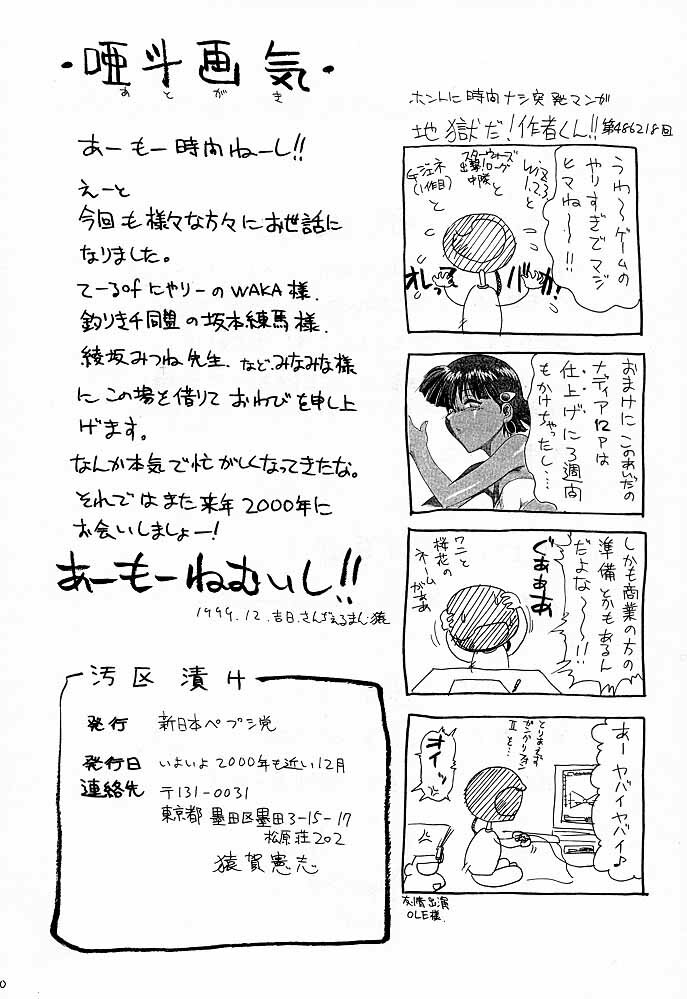 ・唖斗画気・
あとがき
あーもー時間ねーし!!
えーと
今回も様々な方々にお世話に
なりました。
てーるofにゃりーのWAKA様.
釣りキチ同盟の坂本練馬様.
綾坂みつね先生.などみなみな様
にこの場を借りておわびを申し上
げます。
なんか本気で忙がしくなってきたな。
それではまた来年2000年に
お会いしましょー!
あーもーねむいし!!
1999.12.吉日.さんぢぇるまん猿
汚区漬け
発行 新日本ペプシ党
発行日 いよいよ2000年も近い12月
連絡先 〒131-0031
東京都 墨田区墨田3-15-17
松原荘202
猿賀憲志
ホントに時間ナシ突発マンガ
地獄だ!作者くん!!第486218回
うわ〜ゲームの
やりすぎでマジ
ヒマね〜〜!!
Wiz
1.2.3
と
スターウォーズ
出撃!ローグ
中隊
と
(1作目)
と
オレって
バカ?
おまけにこのあいだの
ナディア12Pは
仕上げに3週間
もかけちゃったし…
しかも商業の方の
準備とかもあるん
だよな〜〜!!
ぐぁぁぁ
ワニと
桜花の
ネームがぁぁ
あーヤバイヤバイ♪
とりあえず
Ⅱを…
オイッ
友情出演
OLE様.
0